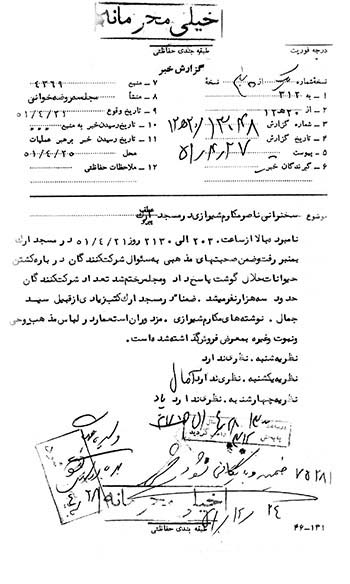 خیلی محرمانه
طبقه بندی حفاظتی
درجه فوریت
گزارش خبر
نسخه شماره از نسخه
۱ - به ۳۱۲
۲ - از ۲۰ ه ۱۲
۳ - شماره گزارش
۴ - تاریخ گزارش ۵۱/۴/۲۷
۵ - پیوست
۶ - گیرندگان خبر
۷ - منبع ۴۳۶۹
۸ - منشأ مجلس روضه خوانی
۹ - تاریخ وقوع ۵۱/۴/۲۱
۱۰ - تاریخ رسیدن خبر به منبع
۱۱ - تاریخ رسیدن خبر به رهبر عملیات
محل ۵۱/۴/۲۵
۱۲ - ملاحظات حفاظتی
موضوع سخنرانی ناصر مکارم شیرازی در مسجد ارک
نامبرده بالا از ساعت ۲۰۳۰ الی ۲۱۳۰ روز ۵۱/۴/۲۱ در مسجد ارک
بمنبر رفت و ضمن صحبتهای مذهبی به سئوال شرکت کنندگان در باره کشتن
حیوانات حلال گوشت پاسخ داد و مجلس ختم شد تعداد شرکت کنندگان
حدود سه هزار نفر میشد . ضمنا در مسجد ارک کتب زیادی از قبیل سید
جمال . نوشته های مکارم شیرازی . مزدوران استعمار در لباس مذهب و حی
و نبوت و غیره به معرض فروش گذاشته شده است .
نظریه شنبه . نظری ندارد
نظریه یکشنبه . نظری ندارد
نظریه چهارشنبه . نظری ندارد
۷۵۲۸۱
خیلی محرمانه
طبقه بندی حفاظتی
۴۶-۱۳۱